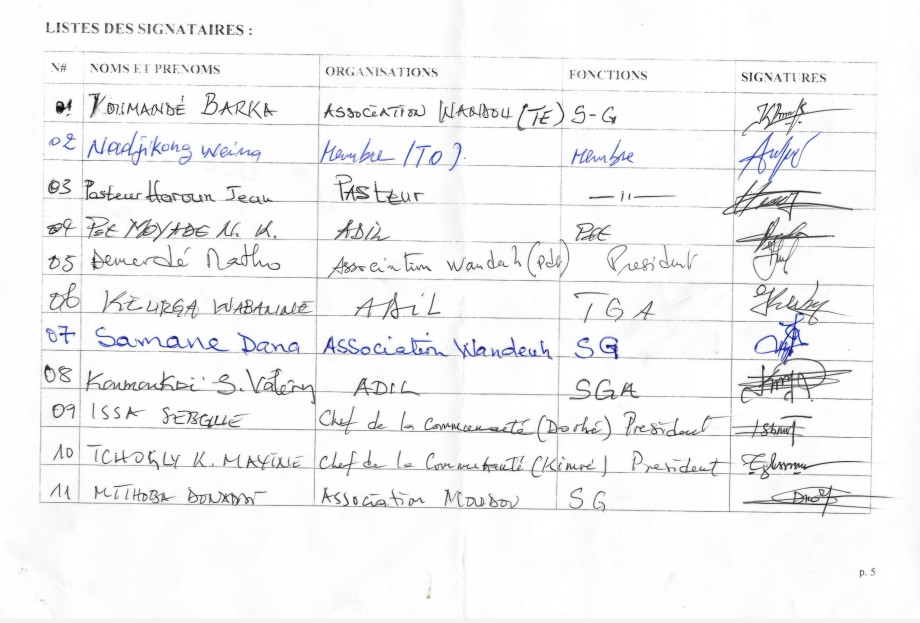 LISTES DES SIGNATAIRES :
N# NOMS ET PRENOMS ORGANISATIONS FONCTIONS SIGNATURES
01 KOUMANDÉ BARKA ASSOCIATION WANDOU (TE) S-G
02 Nadjikong Weina Membre (TO). Membre
03 Pasteur Haroun Jean PASteur —11—
04 PCE MOYADE N. K. ADIL PCE
05 Demerdé Natho Association Wandah (pdt) President
06 KEURGA WABANNE ADIL TGA
07 Samane Dana Association Wandeuh SG
08 Koumoukoï S. Valéry ADIL SGA
09 ISSA Chef de la Communauté (Darbé) President
10 TCHOKLY K. MAXIME Chef de la Communauté (Kimré) President
11 Association MOUDOU SG
p. 5